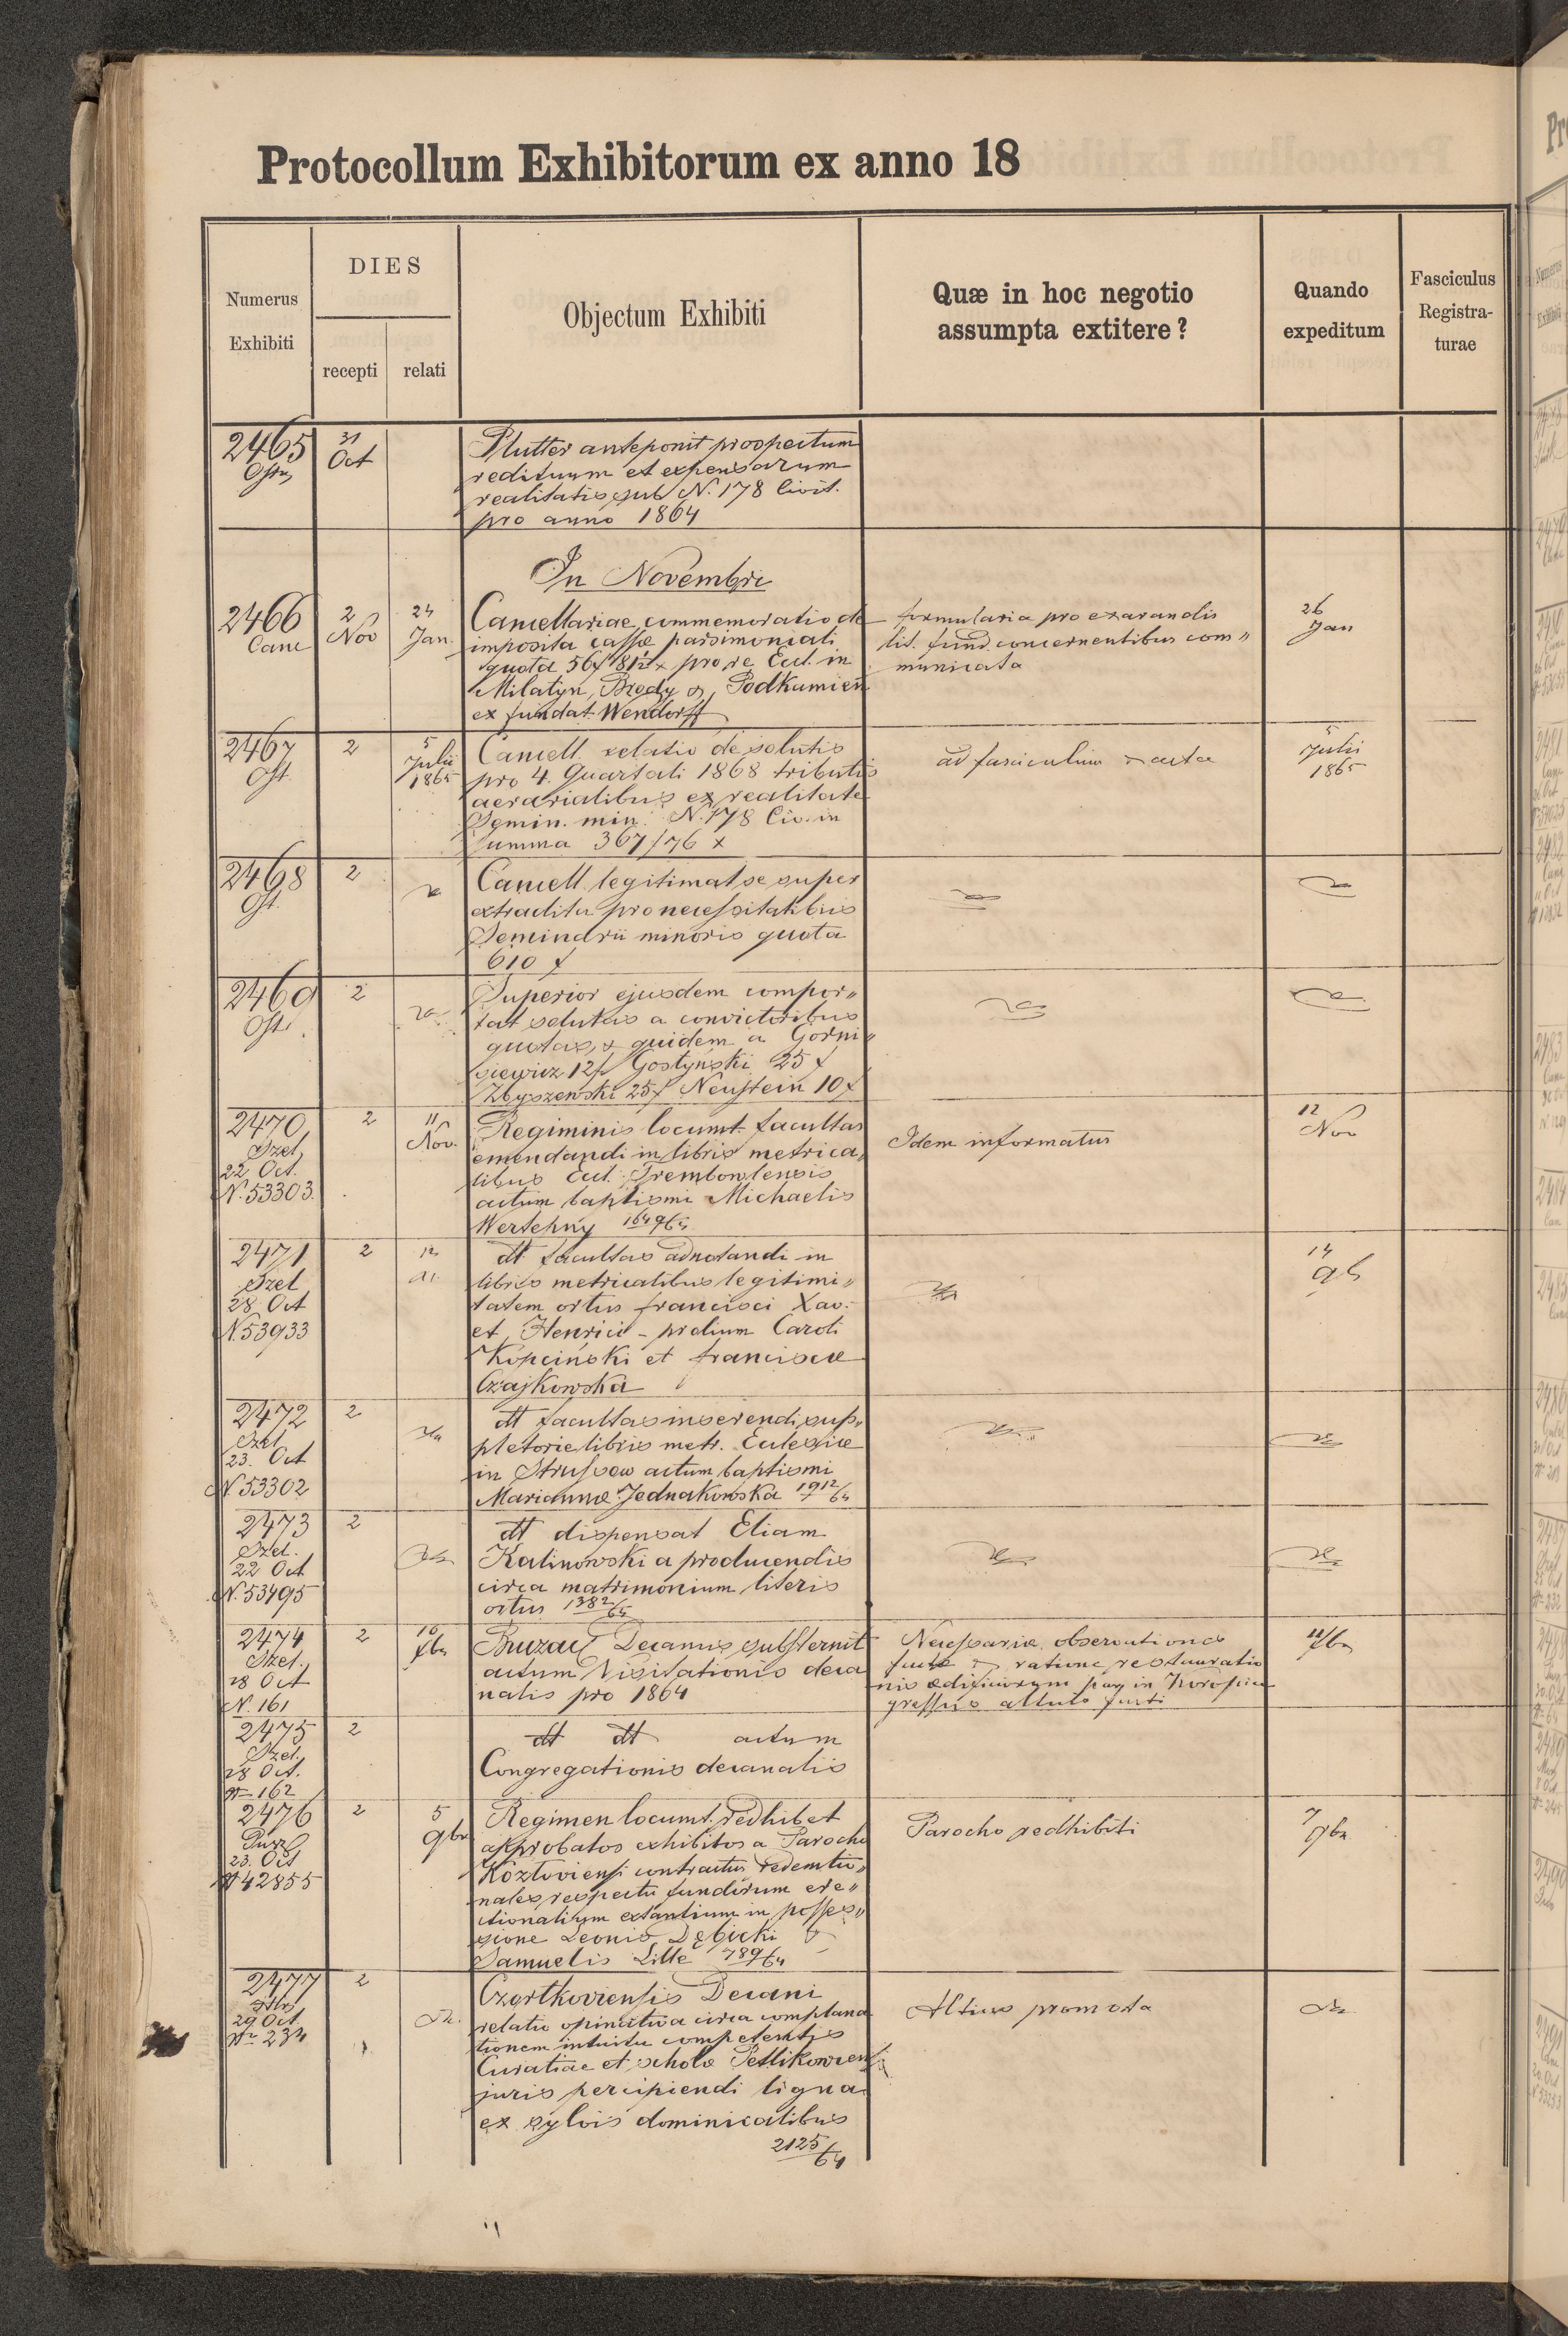 Protocollum Exhibitorum ex anno 18
Numerus
Exhibiti
DIES
recepti relati
Objectum Exhibiti
Quæ in hoc negotio
assumpta extitere?
Quando
expeditum
Fasciculus
Registra-
turae
2465
31
Oct
Plutter anteponit prospectum
redituum et expensarum
realitatis sub N. 178 Civit.
pro anno 1864
In Novembri
2466
Canc
2
Nov
24
Jan.
Cancellariae commemoratio de
imposita cassæ parsimoniali
quota 56f 81½x pro re Eccl. in
Milatyn, Brody & Podkamien
ex fundat. Wendorff
formularia pro exarandis
lit. fund. concernentibus com„
municata
26
Jan
2467
Ost.
2
5
Julii
1865
Cancell. relatio de solutis
pro 4. Quartali 1868 tributis
aerarialibus ex realitate
Semin. min. N. 178 Civ. in
summa 367/76 x
ad fasciculum & acta
5
Julii
1865
2468
Ost.
2
Cancell. legitimat se super
extradita pro necessitatibus
Seminarii minoris quota
610 f
2469
Ost.
2
Superior ejusdem compor„
tat solutas a convictoribus
quotas, & quidem a Gorni„
siewicz 12f Gostyński 25 f
Zbyszewski 25f Neustein 10f
2470
Szel.
22 Oct.
N. 53303.
2
11
Nov.
Regiminis locumt. facultas
emendandi in libris metrica„
libus Eccl. Trembowlensis
actum baptismi Michaelis
Wertehny 1649/64
Idem informatus
12
Nov
2471
Szel
28 Oct
N. 53933
2
12
dt facultas adnotandi in
libris metricalibus legitimi„
tatem ortus Francisci Xav.
et Henrici - prolium Caroli
Kopciński et Franciscae
Czajkowska
14
9b
2472
Szel
23. Oct
N 53302
2
dt facultas inserendi sup„
pletorie libris metr. Ecclesiae
in Strussow actum baptismi
Mariannæ Jednakowska 1912/64
2473
Szel.
22 Oct
N. 53495
2
dt dispensat Eliam
Kalinowski a producendis
circa matrimonium literis
ortus 1382/64
2474
Szel.
28 Oct
N. 161
2
10
Xbr
Buczacz Decanus substernit
actum Visitationis deca
nalis pro 1864
Necessariæ observationes
factæ & ratione restauratio
nis ædificiorum par. in
11/Xbr
2475
Szel.
28 Oct.
N 162
2
dt dt actum
Congregationis decanalis
2476
23. Oct
N 42855
2
5
9br
Regimen locumt. redhibet
approbatos exhibitos a Parocho
Kozłoviensi contractus redemtio„
nales respectu fundorum ere„
ctionalium extantium in posses„
sione Leonis Dębicki &
Samuelis Lille 789/64
Parocho redhibiti
7
9br
2477
29 Oct
Nr 234
2
Czortkoviensis Decani
relatio opinativa circa complana
tionem intuitu competentis
Curatiae et scholæ Petlikoviensi
juris percipiendi ligna
ex sylvis dominicalibus
2125/64
Altius promota